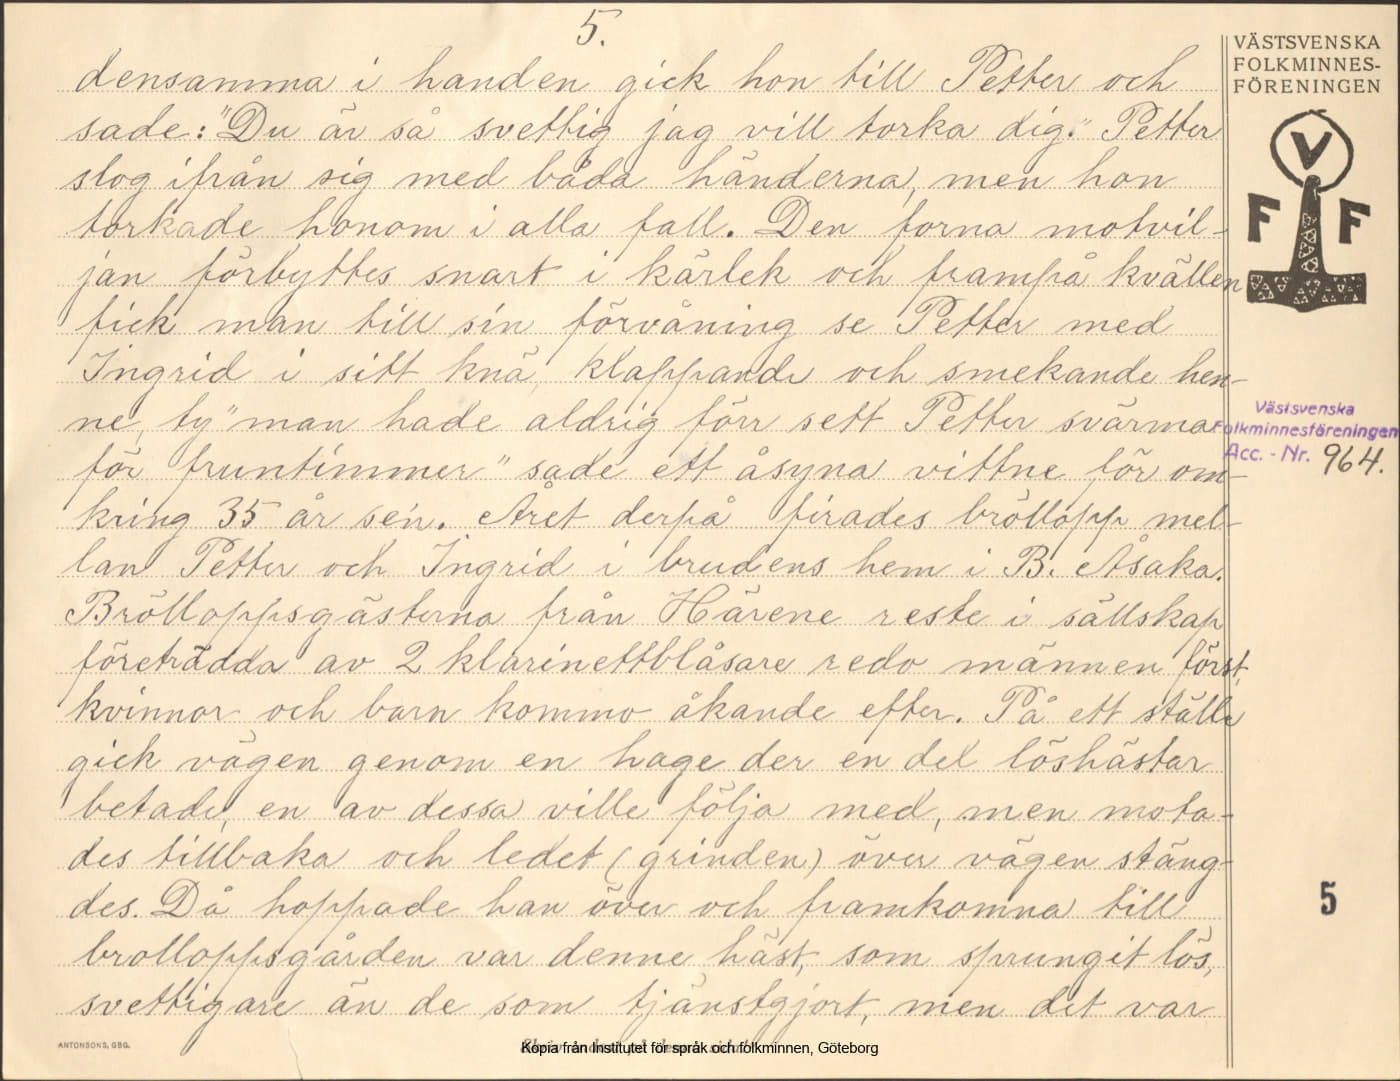 5.
densamma i handen gick hon till Petter och
sade: "Du är så svettig jag vill torka dig." Petter
slog ifrån sig med båda händerna, men hon
torkade honom i alla fall. Den forna motvil-
jan förbyttes snart i kärlek och frampå kvällen
fick man till sin förvåning se Petter med
Ingrid i sitt knä, klappande och smekande hen-
ne, ty "man hade aldrig förr sett Petter svärma
för fruntimmer" sade ett åsyna vittne för om-
kring 35 år sen. Året derpå firades bröllopp mel-
lan Petter och Ingrid i brudens hem i B. Åsaka.
Brölloppsgästerna från Härene reste i sällskap
företrädda av 2 klarinettblåsare redo männen först,
kvinnor och barn kommo åkande efter. På ett ställe
gick vägen genom en hage der en del löshästar
betade, en av dessa ville följa med, men mota-
des tillbaka och ledet (grinden) över vägen stäng-
des. Då hoppade han över och framkomna till
brolloppsgården var denne häst, som sprungit lös,
svettigare än de som tjänstgjort, men det var
VÄSTSVENSKA
FOLKMINNES-
FÖRENINGEN
V
F F
Västsvenska
Folkminnesföreningen
Acc. - Nr. 964.
5
ANTONSONS, GBG.
Kopia från Institutet för språk och folkminnen, Göteborg